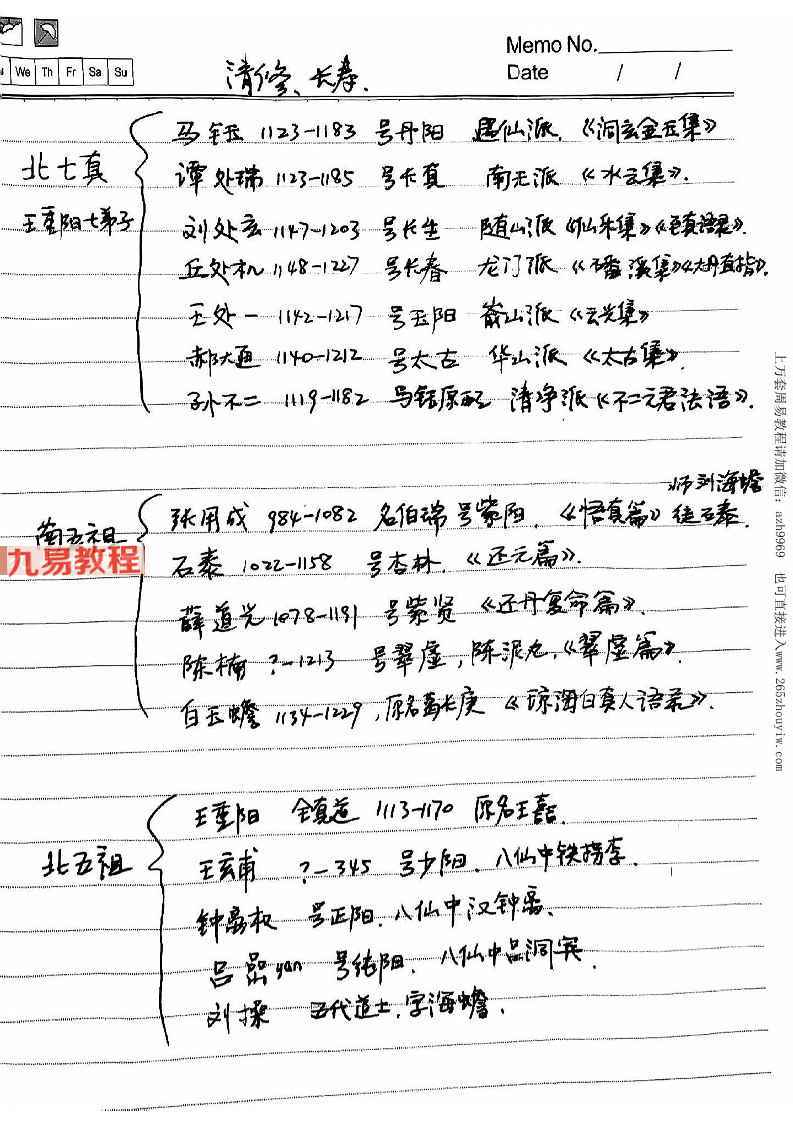 Memo No.
We Th Fr Sa Su
Date / /
清修、长寿.
北七真
王重阳七弟子
马钰 1123-1183 号丹阳 遇仙派.《洞玄金玉集》
谭处瑞 1123-1185 号长真 南无派《水云集》.
刘处玄 1147-1203 号长生 随山派《仙乐集》《至真语录》.
丘处机 1148-1227 号长春 龙门派《磻溪集》《大丹直指》.
王处一 1142-1217 号玉阳 嵛山派《云光集》
郝大通 1140-1212 号太古 华山派《太古集》.
孙不二 1119-1182 马钰原配 清净派《不二元君法语》.
师刘海蟾
南五祖
张用成 984-1082 名伯瑞 号紫阳.《悟真篇》徒石泰.
石泰 1022-1158 号杏林.《还元篇》.
薛道光 1078-1191 号紫贤《还丹复命篇》.
陈楠 ?-1213 号翠虚,陈泥丸,《翠虚篇》.
白玉蟾 1134-1229,原名葛长庚《琼琯白真人语录》.
北五祖
王重阳 全真道 1113-1170 原名王嚞.
王玄甫 ?-345 号少阳.八仙中铁拐李.
钟离权 号正阳.八仙中汉钟离.
吕嵒yan 号纯阳.八仙中吕洞宾.
刘操 五代道士.字海蟾.
九易教程
上万套周易教程请加微信:azh9969 也可直接进入www.265zhouyiw.com